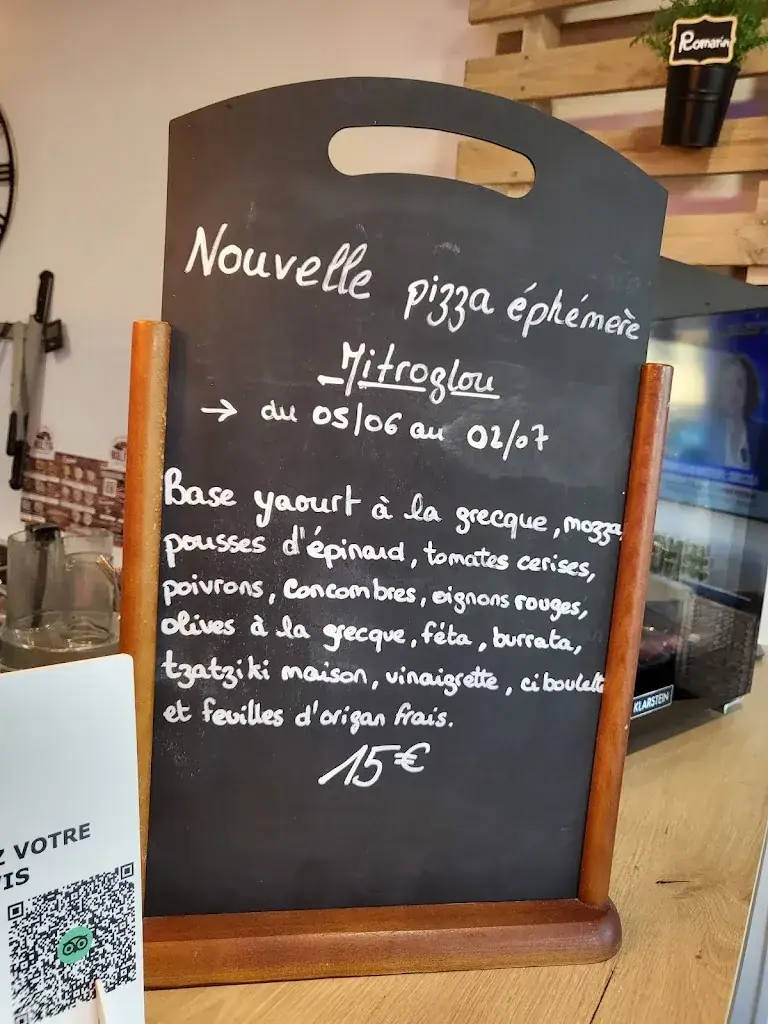 Romarin
Nouvelle pizza éphémère
Mitroglou
→ du 05/06 au 02/07
Base yaourt à la grecque, mozza,
pousses d'épinard, tomates cerises,
poivrons, concombres, oignons rouges,
olives à la grecque, féta, burrata,
tzatziki maison, vinaigrette, ciboulette
et feuilles d'origan frais.
15€
KLARSTEIN
Z VOTRE
VIS